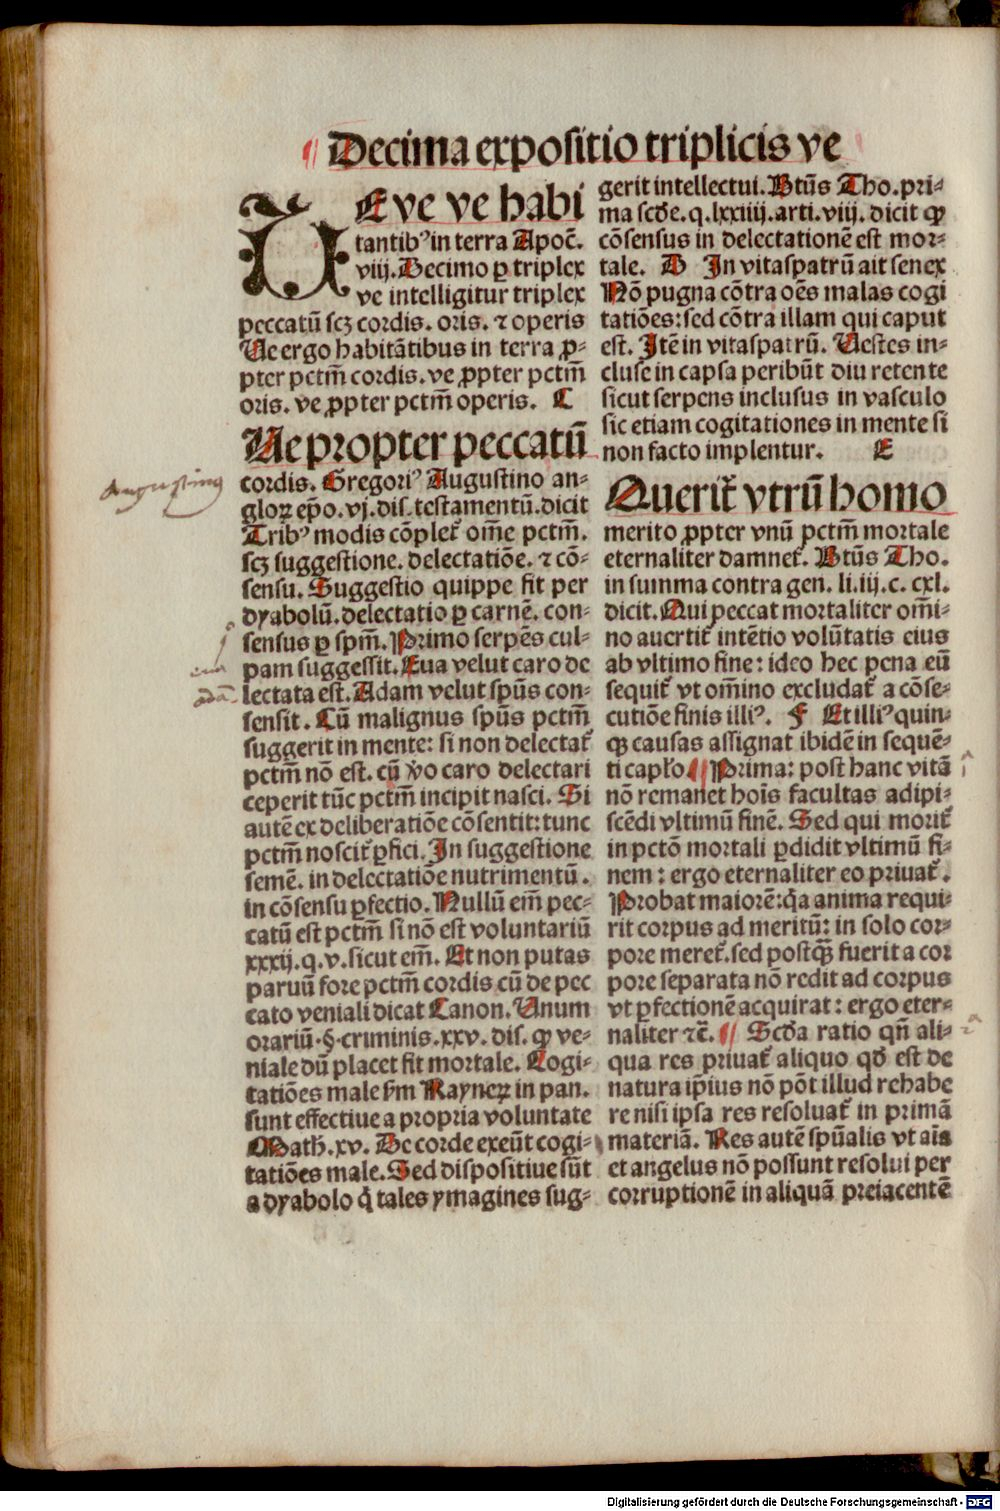 Decima expositio triplicis ve
VE ve ve habi
tantibꝰ in terra Apoc̃.
viij. Decimo ꝑ triplex
ve intelligitur triplex
peccatũ scꝫ cordis. oris. ⁊ operis
Ue ergo habitãtibus in terra ꝓ-
pter pctm̃ cordis. ve ꝓpter pctm̃
oris. ve ꝓpter pctm̃ operis. C
Ue propter peccatũ
cordis. Gregoriꝰ Augustino an-
gloꝝ ep̃o. vj. dis. testamentũ. dicit
Tribꝰ modis cõplet᷑ om̃e pctm̃.
scꝫ suggestione. delectatiõe. ⁊ cõ-
sensu. Suggestio quippe fit per
dyabolũ. delectatio ꝑ carnẽ. con-
sensus ꝑ spm̃. Primo serpẽs cul-
pam suggessit. Eua velut caro de
lectata est. Adam velut spũs con-
sensit. Cũ malignus spũs pctm̃
suggerit in mente: si non delectat᷑
pctm̃ nõ est. cũ v̾o caro delectari
ceperit tũc pctm̃ incipit nasci. Si
autẽ ex deliberatiõe cõsentit: tunc
pctm̃ noscit᷑ ꝑfici. In suggestione
semẽ. in delectatiõe nutrimentũ.
in cõsensu ꝑfectio. Nullũ em̃ pec-
catũ est pctm̃ si nõ est voluntariũ
xxxij. q. v. sicut em̃. Et non putas
paruũ fore pctm̃ cordis cũ de pec
cato veniali dicat Canon. Unum
orariũ. §. criminis. xxv. dis. ꝙ ve-
niale dũ placet fit mortale. Cogi-
tatiões male sm̃ Rayneꝝ in pan.
sunt effectiue a propria voluntate
Math̃. xv. De corde exeũt cogi-
tatiões male. Sed dispositiue sũt
a dyabolo q̇ tales ymagines sug-
gerit intellectui. Btũs Tho. pri-
ma scðe. q. lxxiiij. arti. viij. dicit ꝙ
cõsensus in delectationẽ est mor-
tale. D In vitaspatrũ ait senex
Nõ pugna cõtra oẽs malas cogi
tatiões: sed cõtra illam qui caput
est. Itẽ in vitaspatrũ. Uestes in-
cluse in capsa peribũt diu retente
sicut serpens inclusus in vasculo
sic etiam cogitationes in mente si
non facto implentur. E
Querit᷑ vtrũ homo
merito ꝓpter vnũ pctm̃ mortale
eternaliter damnet᷑. Btũs Tho.
in summa contra gen. li. iij. c. cxl.
dicit. Qui peccat mortaliter om̃i-
no auertit᷑ intẽtio volũtatis eius
ab vltimo fine: ideo hec pena eũ
sequit᷑ vt om̃ino excludat᷑ a cõse-
cutiõe finis illiꝰ. F Et illiꝰ quin-
qꝫ causas assignat ibidẽ in sequẽ-
ti capło ¶ Prima: post hanc vitã
nõ remanet hoĩs facultas adipi-
scẽdi vltimũ finẽ. Sed qui morit᷑
in pctõ mortali ꝑdidit vltimũ fi-
nem: ergo eternaliter eo priuat᷑.
Probat maiorẽ: q̃a anima requi-
rit corpus ad meritũ: in solo cor-
pore meret᷑. sed postꝗ̃ fuerit a cor
pore separata nõ redit ad corpus
vt ꝑfectionẽ acquirat: ergo eter-
naliter ⁊c̃. ¶ Scða ratio qñ ali-
qua res priuat᷑ aliquo qð est de
natura ip̃ius nõ põt illud rehabe
re nisi ipsa res resoluat᷑ in primã
materiã. Res autẽ spũalis vt aĩa
et angelus nõ possunt resolui per
corruptionẽ in aliquã preiacentẽ
Augustinus
eua
adã
Digitalisierung gefördert durch die Deutsche Forschungsgemeinschaft - DFG